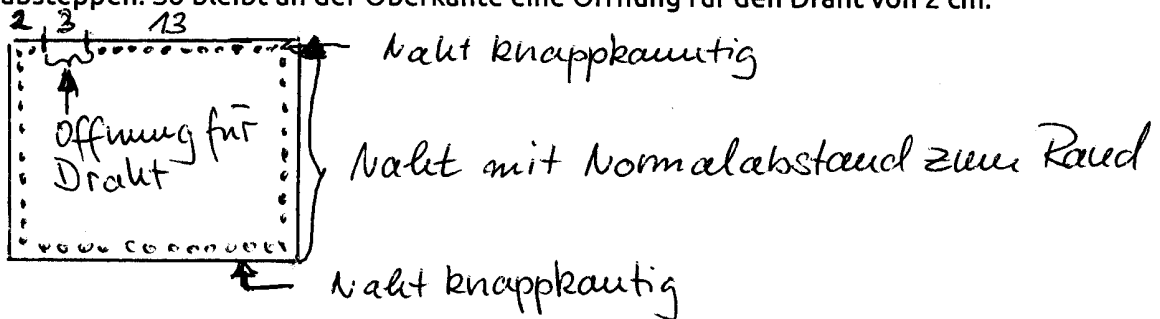 absteppen. So bleibt an der Oberkante eine Öffnung für den Draht von 2 cm.
2 3 13
Naht knappkantig
Öffnung für
Draht
Naht mit Normalabstand zum Rand
Naht knappkantig